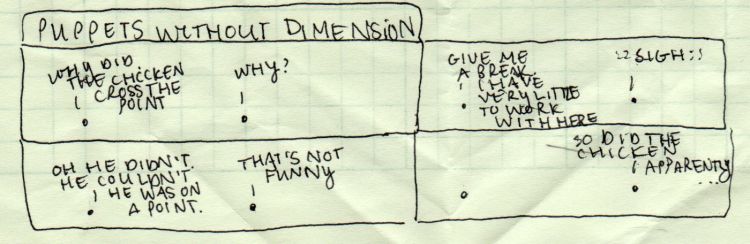 PUPPETS WITHOUT DIMENSION
WHY DID
THE CHICKEN
CROSS THE
POINT
WHY?
OH HE DIDN'T.
HE COULDN'T
HE WAS ON
A POINT.
THAT'S NOT
FUNNY
GIVE ME
A BREAK.
I HAVE
VERY LITTLE
TO WORK
WITH HERE
::SIGH::
SO DID THE
CHICKEN
APPARENTLY
...